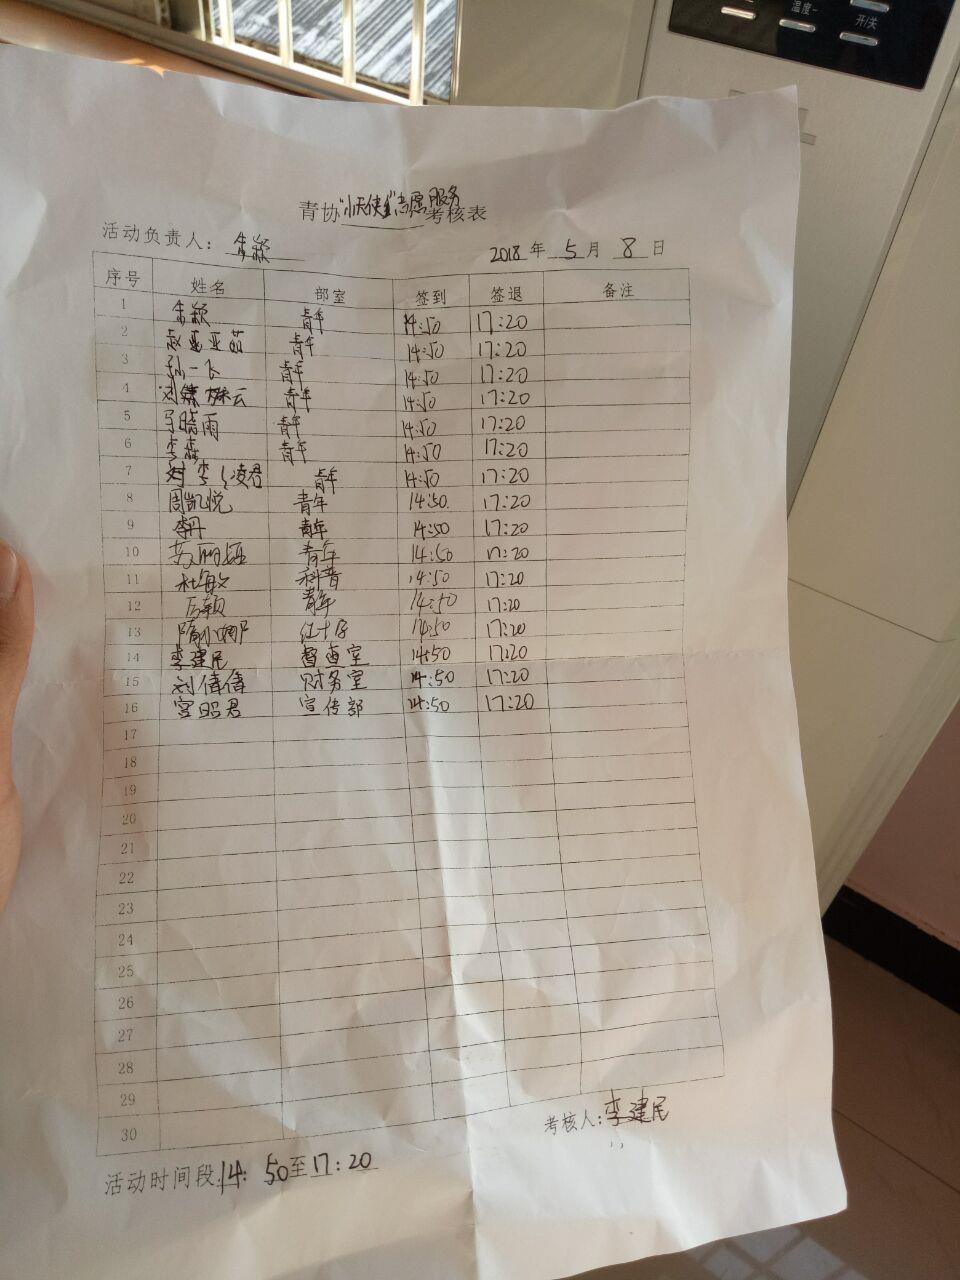 温度-
开/关
青协"小天使"志愿服务考核表
活动负责人：朱颖 2018年5月8日
序号 姓名 部室 签到 签退 备注
1 朱颖 青年 14:50 17:20
2 赵亚茹 青年 14:50 17:20
3 孙一飞 青年 14:50 17:20
4 刘云 青年 14:50 17:20
5 于晓雨 青年 14:50 17:20
6 李森 青年 14:50 17:20
7 凌君 青年 14:50 17:20
8 周凯悦 青年 14:50 17:20
9 李丹 青年 14:50 17:20
10 苏丽 青年 14:50 17:20
11 杜敏 科普 14:50 17:20
12 青年 14:50 17:20
13 隋小娜 红十字 14:50 17:20
14 李建民 督查室 14:50 17:20
15 刘倩倩 财务室 14:50 17:20
16 宫昭君 宣传部 14:50 17:20
17
18
19
20
21
22
23
24
25
26
27
28
29
30
考核人：李建民
活动时间段：14:50至17:20